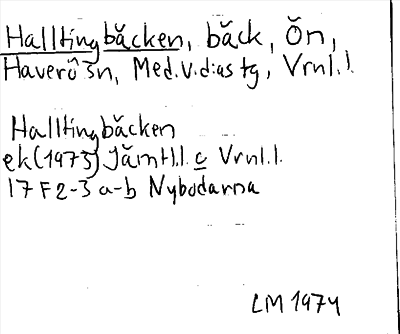 Halltingbäcken, bäck, Ön,
Haverö sn, Med.v.dias tg, Vrnl.l.
Halltingbäcken
ek (1973) Jämtl.l. c Vrnl.l.
17 F 2-3 a-b Nybodarna
LM 1974